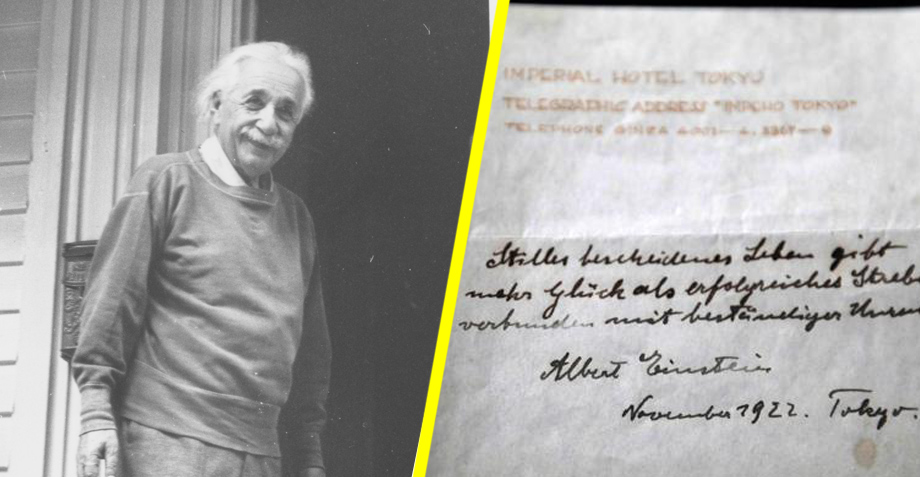 IMPERIAL HOTEL TOKYO
TELEGRAPHIC ADDRESS "IMPEHO TOKYO"
TELEPHONE GINZA
Stilles bescheidenes Leben gibt
mehr Glück als erfolgreiches Streb
verbunden mit beständiger Unru
Albert Einstein
November 1922. Tokyo.